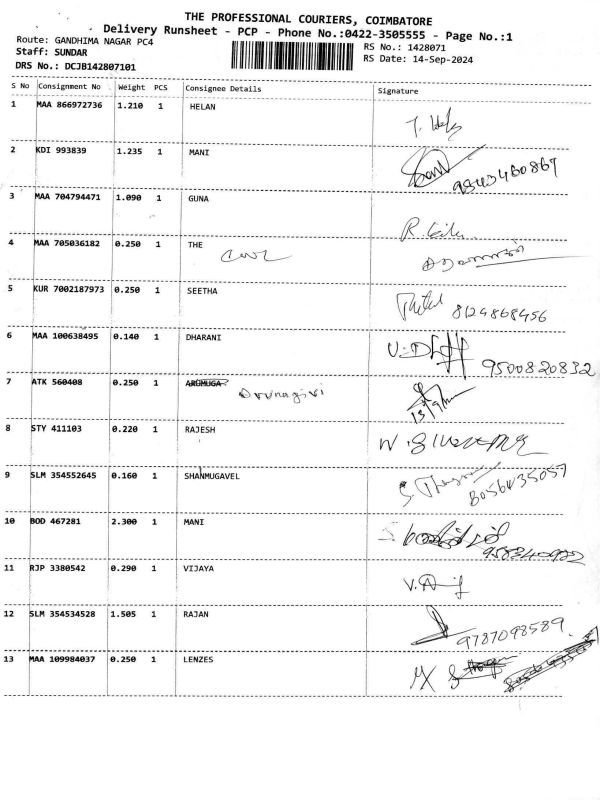 THE PROFESSIONAL COURIERS, COIMBATORE
Delivery Runsheet - PCP - Phone No.:0422-3505555 - Page No.:1
Route: GANDHIMA NAGAR PC4 RS No.: 1428071
Staff: SUNDAR RS Date: 14-Sep-2024
DRS No.: DCJB142807101
S No Consignment No Weight PCS Consignee Details Signature
1 MAA 866972736 1.210 1 HELAN
2 KDI 993839 1.235 1 MANI
9843460869
3 MAA 704794471 1.090 1 GUNA
R.
4 MAA 705036182 0.250 1 THE
5 KUR 7002187973 0.250 1 SEETHA
8124868456
6 MAA 100638495 0.140 1 DHARANI
9500820832
7 ATK 560408 0.250 1 ARUMUGA Arunagiri
8 STY 411103 0.220 1 RAJESH
9 SLM 354552645 0.160 1 SHANMUGAVEL
8056435057
10 BOD 467281 2.300 1 MANI
11 RJP 3380542 0.290 1 VIJAYA
12 SLM 354534528 1.505 1 RAJAN
9787098589
13 MAA 109984037 0.250 1 LENZES